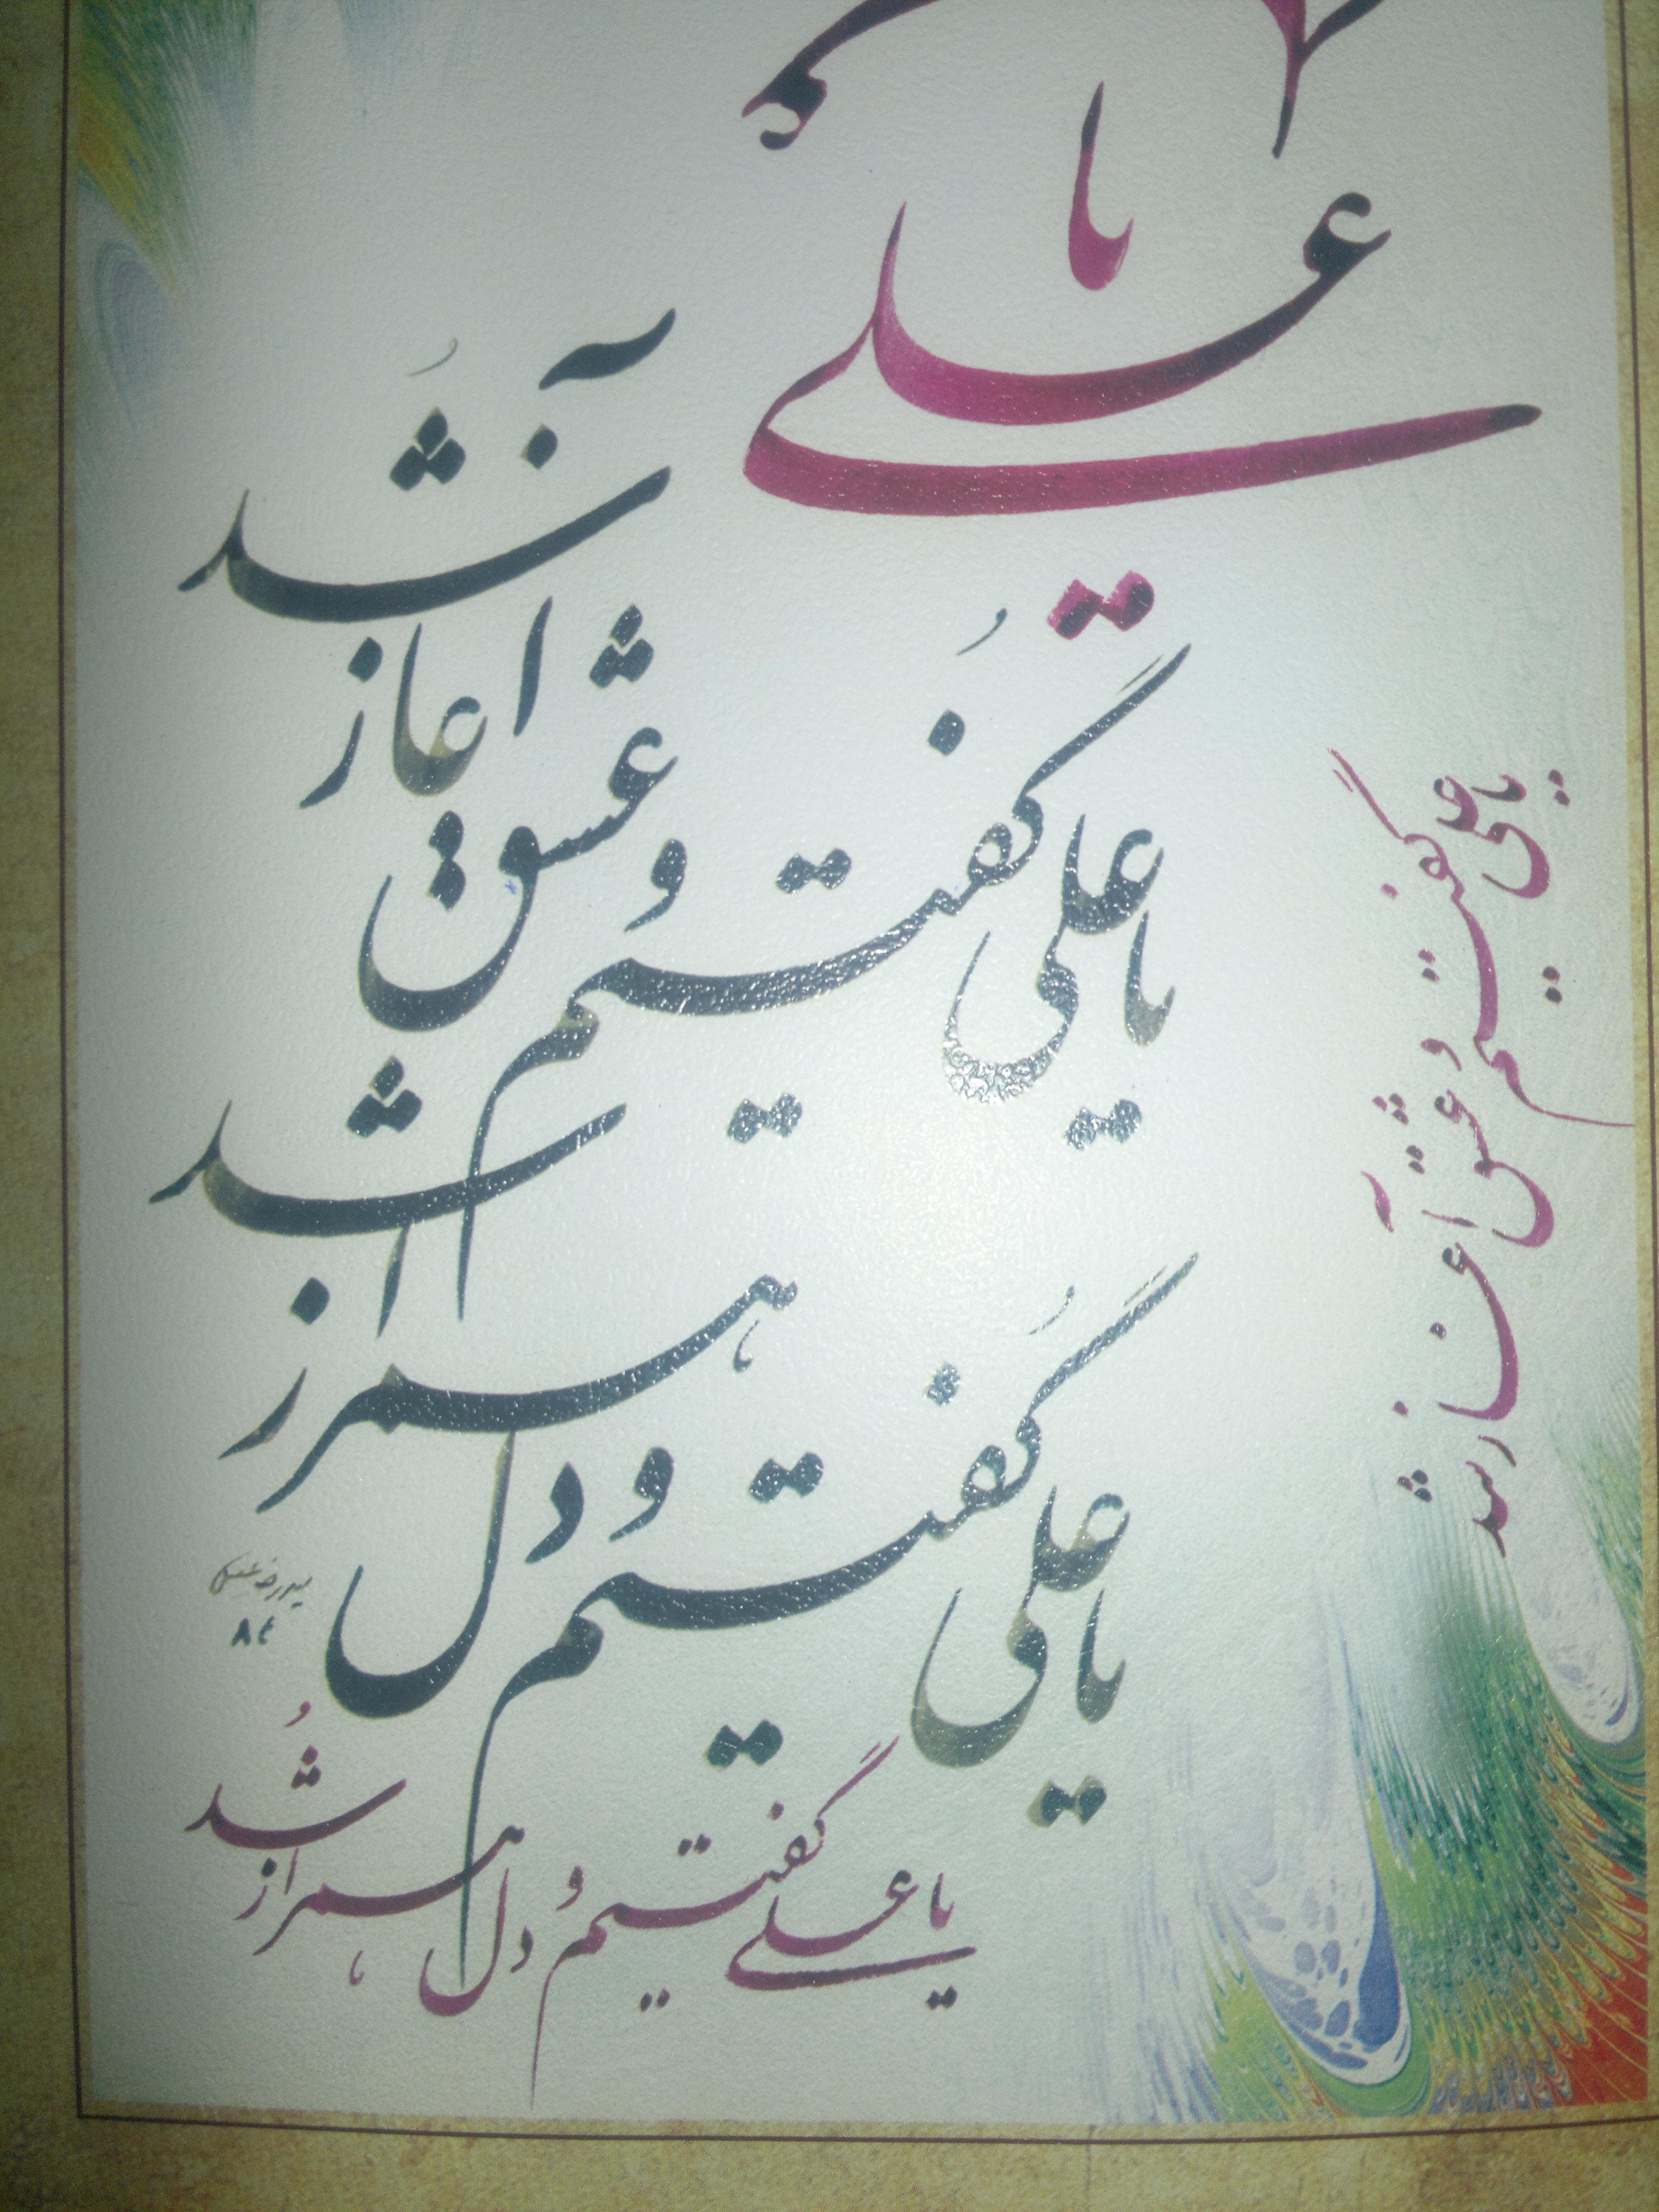 یا
علی
یا علی گفتیم و عشق آغاز شد
یا علی گفتیم و دل همراز شد
یا علی گفتیم و عشق آغاز شد
یا علی گفتیم و دل همراز شد
۸۴